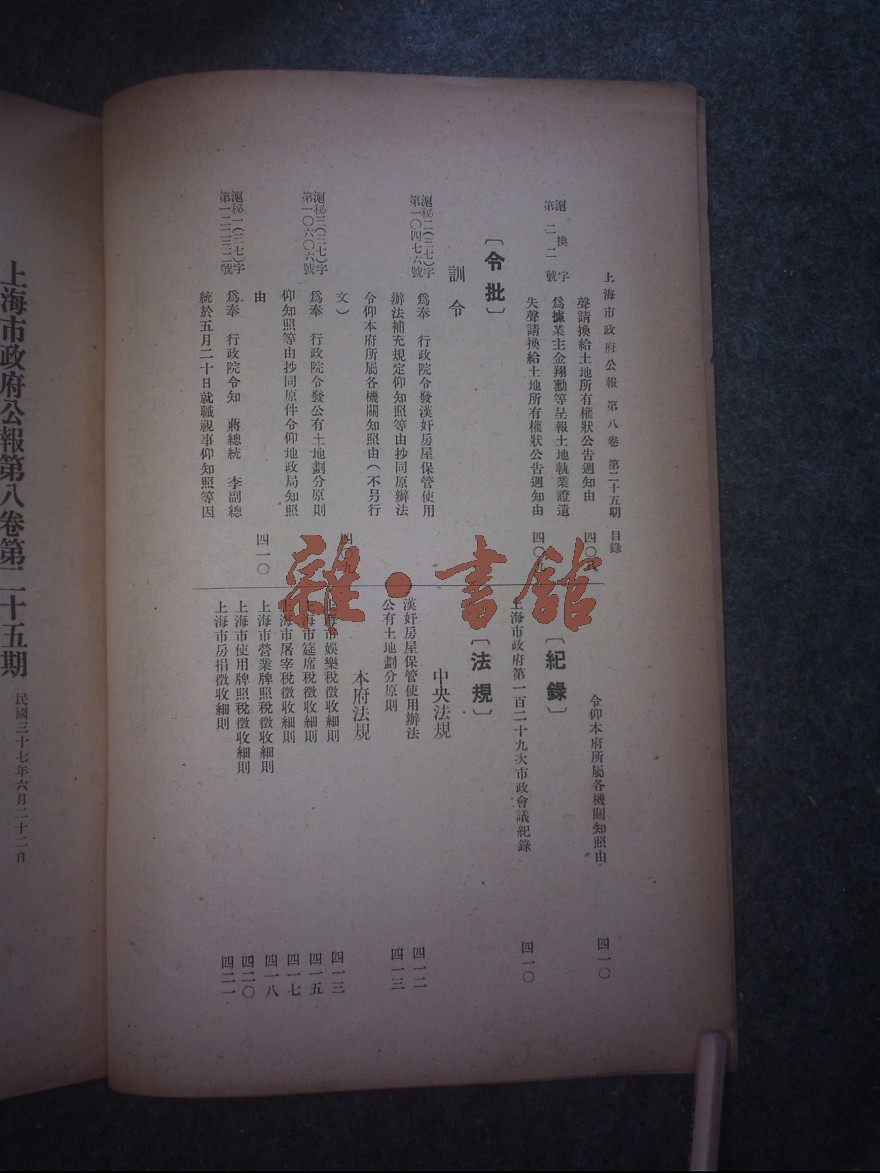 上海市政府公報 第八卷 第二十五期 目錄
聲請換給土地所有權狀公告週知由
滬換字
第二二號
為據業主金翔勳等呈報土地執業證遺
失聲請換給土地所有權狀公告週知由
〔令批〕
訓令
滬秘二(三七)字
第一〇四七六號
為奉 行政院令發漢奸房屋保管使用
辦法補充規定仰知照等由抄同原辦法
令仰本府所屬各機關知照由(不另行
文)
滬秘三(三七)字
第一〇六〇六號
為奉 行政院令發公有土地劃分原則
仰知照等由抄同原件令仰地政局知照
由
四一〇
滬秘一(三七)字
第一二二三二號
為奉 行政院令知 蔣總統 李副總
統於五月二十日就職視事仰知照等因
令仰本府所屬各機關知照由
四一〇
〔紀錄〕
上海市政府第一百二十九次市政會議紀錄
四一〇
〔法規〕
中央法規
漢奸房屋保管使用辦法
四一二
公有土地劃分原則
四一三
本府法規
上海市娛樂稅徵收細則
四一三
上海市筵席稅徵收細則
四一五
上海市屠宰稅徵收細則
四一七
上海市營業牌照稅徵收細則
四一八
上海市使用牌照稅徵收細則
四二〇
上海市房捐徵收細則
四二一
上海市政府公報第八卷第二十五期
民國三十七年六月二十二日
雜·書館